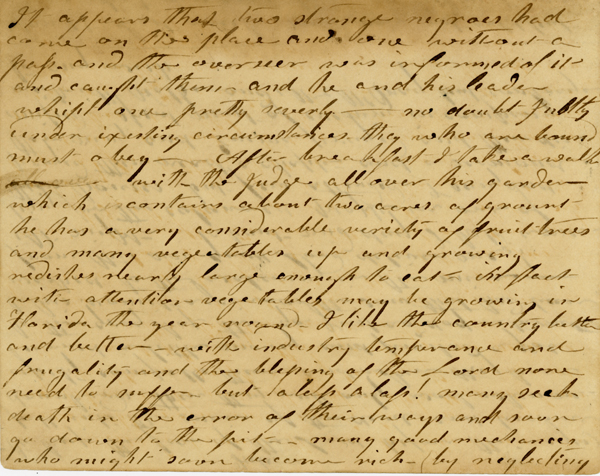 It appears that two strange negroes had
came on the place and one without a
pass and the overseer was informed of it
and caught them and he and his leader
whipt one pretty severly — no doubt justly
under existing circumstances they who are bound
must obey — After breakfast I take a walk
with the Judge all over his garden
which contains about two acres of ground
he has a very considerable veriety of fruit trees
and many vegetables up and growing
redishes nearly large enough to eat — In fact
with attention vegetables may be growing in
Florida the year round — I like the country better
and better — with industry temperance and
frugality and the blessing of the Lord none
need to suffer but alass alass! many seek
death in the error of their ways and soon
go down to the pit — many good mechanics
who might soon become rich — (by neglecting